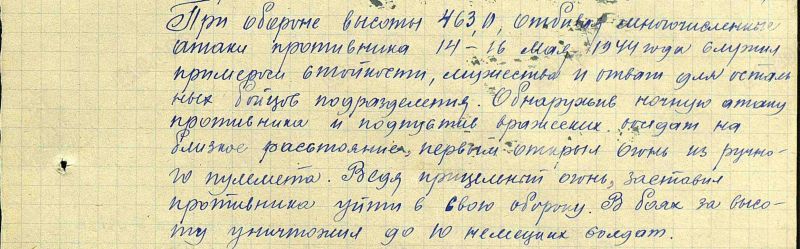 При обороне высоты 463,0, отбивая многочисленные
атаки противника 14-16 мая 1944 года служил
примером стойкости, мужества и отваги для осталь
ных бойцов подразделения. Обнаружив ночную атаку
противника и подпустив вражеских солдат на
близкое расстояние, первым открыл огонь из ручно-
го пулемета. Ведя прицельный огонь, заставил
противника уйти в свою оборону. В боях за высо-
ту уничтожил до 10 немецких солдат.